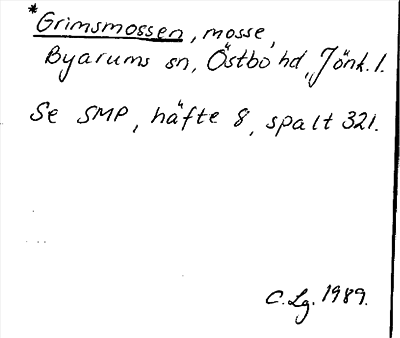 *Grimsmossen, mosse,
Byarums sn, Östbo hd, Jönk. l.
Se SMP, häfte 8, spalt 321.
C. Lg. 1989.